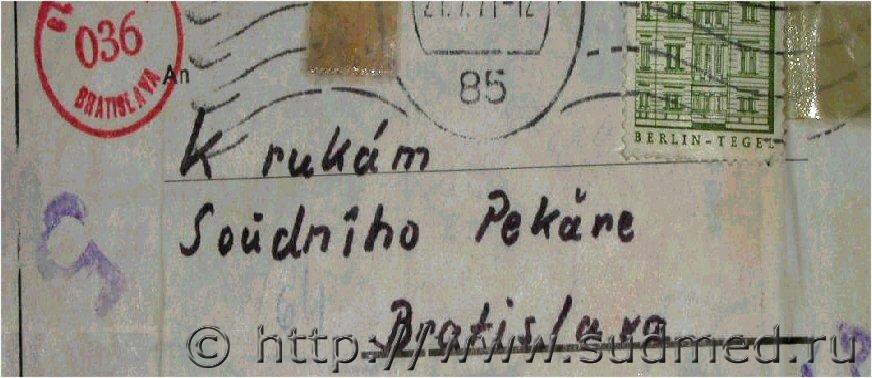 036
BRATISLAVA
21.7.71-12
85
BERLIN-TEGEL
An
K rukám
Soudního Pekáře
Bratislava
© http://www.sudmed.ru